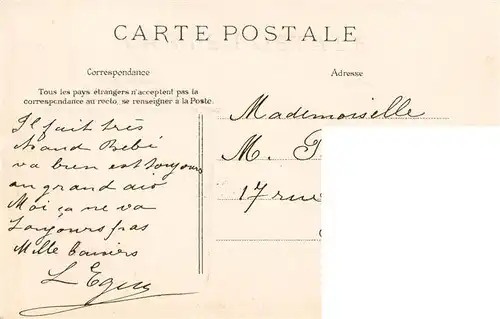 CARTE POSTALE
Correspondance
Adresse
Tous les pays étrangers n'acceptent pas la
correspondance au recto, se renseigner à la Poste.
Il fait très
chaud Bébé
va bien est toujours
au grand air
Moi ça ne va
Toujours pas
Mille baisers
Mademoiselle
M.
17 rue